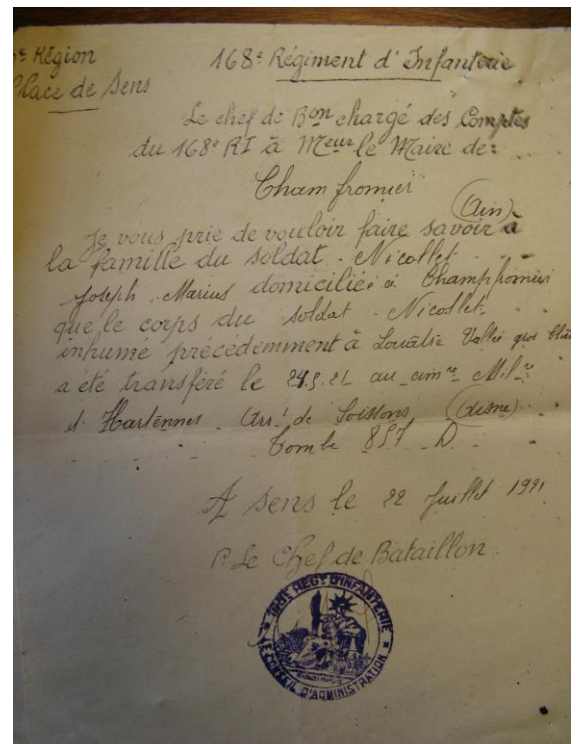 e Région
Place de Sens
168e Régiment d'Infanterie
Le chef de Bon chargé des Comptes
du 168e RI à Meur le Maire de:
Chamfromier
(Ain)
Je vous prie de vouloir faire savoir à
la famille du soldat. Nicollet.
Joseph. Marius domicilié à Champfromier
que le corps du soldat. Nicollet.
inhumé précédemment à Louâtre Vallée gros
a été transféré le 24.5.21 au cimre Milre
d'Hartennes. Arrt de Soissons (Aisne)
Tombe 857 D.
A Sens le 22 Juillet 1921
P. Le Chef de Bataillon.
168E REGT D'INFANTERIE
LE CONSEIL D'ADMINISTRATION